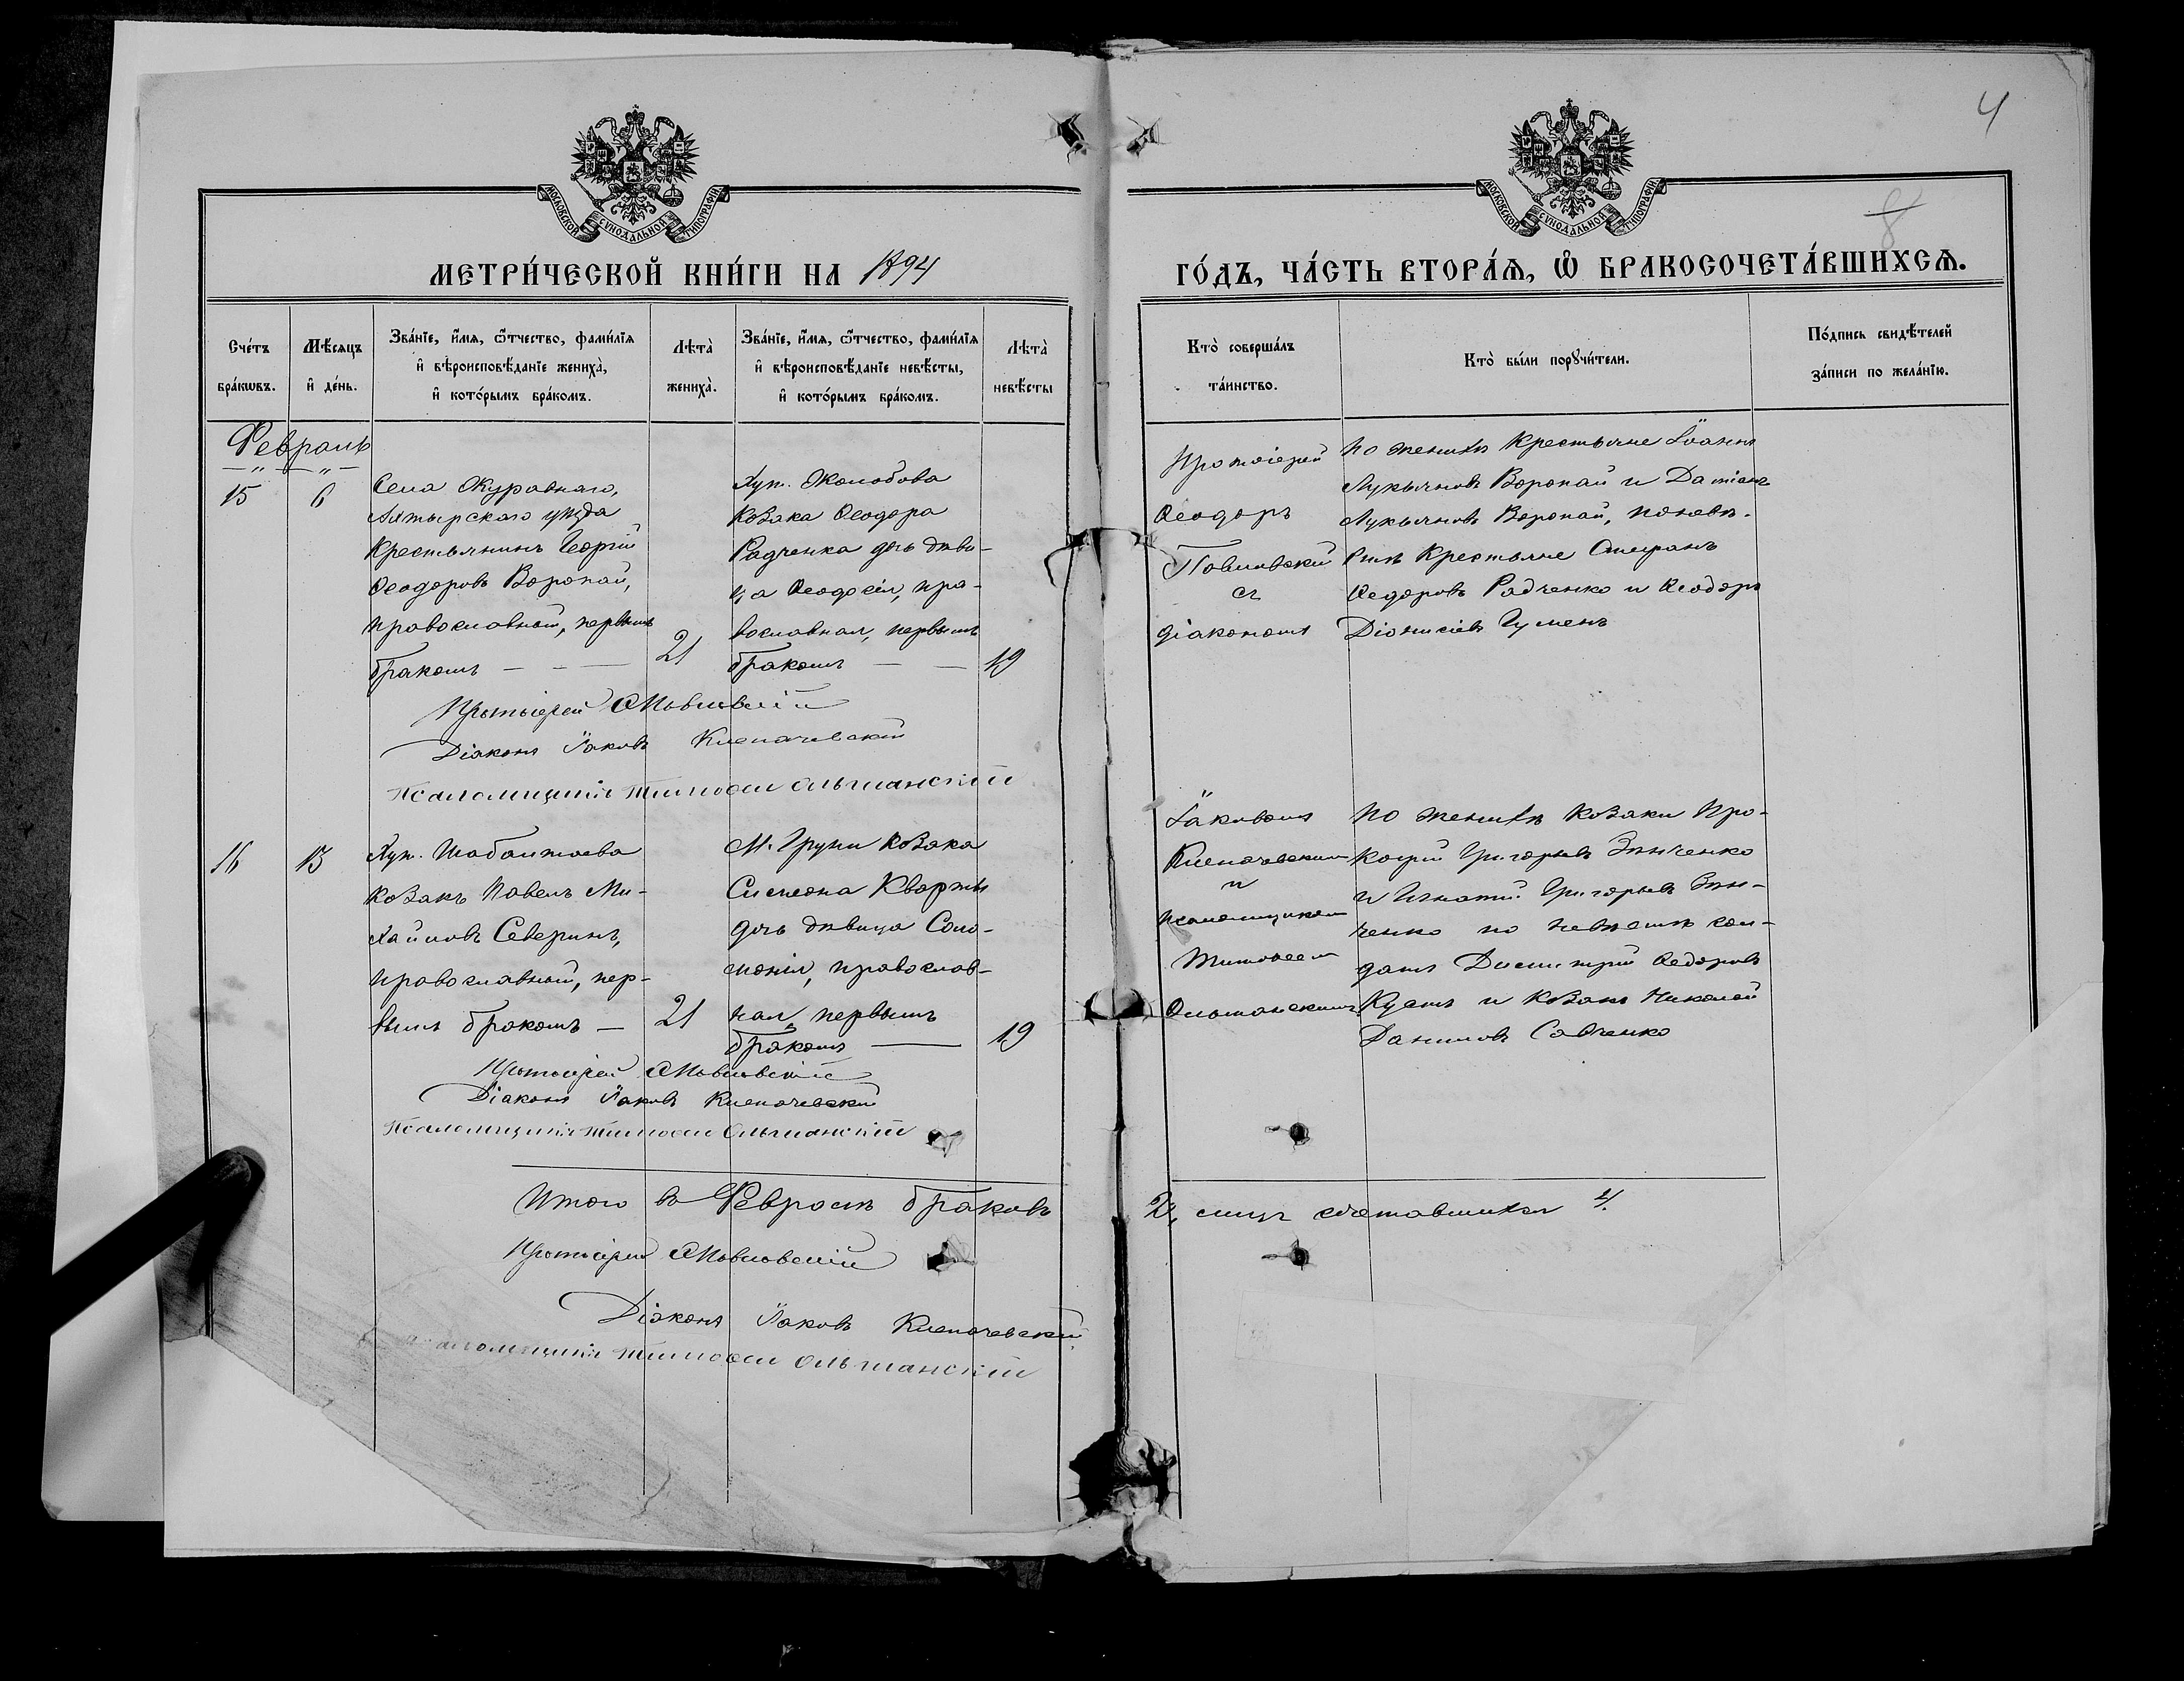 4
8
МОСКОВСКОЙ СѴНОДАЛЬНОЙ ТИПОГРАФІИ.
МОСКОВСКОЙ СѴНОДАЛЬНОЙ ТИПОГРАФІИ.
МЕТРИ́ЧЕСКОЙ КНИ́ГИ НА 1894
ГО́ДЪ, ЧА́СТЬ ВТОРА́Я, Ѽ БРАКОСОЧЕТА́ВШИХСЯ.
Сче́тъ бра́кѡвъ.
Мѣ́сяцъ и҆ де́нь.
Зва́нїе, и҆́мя, ѻ҆́тчество, фами́лїя и҆ вѣроисповѣ́данїе жениха̀, и҆ кото́рымъ бра́комъ.
Лѣта̀ жениха̀.
Зва́нїе, и҆́мя, ѻ҆́тчество, фами́лїя и҆ вѣроисповѣ́данїе невѣ́сты, и҆ кото́рымъ бра́комъ.
Лѣта̀ невѣ́сты
Кто̀ соверша́лъ та́инство.
Кто̀ бы́ли порꙋчи́тели.
По́дпись свидѣ́телей за́писи по жела́нїю.
Февраль
15
6
Села Журавнаго,
Ахтырскаго уѣзда
Крестьянинъ Георгій
Ѳеодоровъ Воропай,
православный, первымъ
бракомъ —
21
Хут. Жолобова
Козака Ѳеодора
Радченка дочь дѣви-
ца Ѳеодосія, пра-
вославная, первымъ
бракомъ —
19
Протоіерей
Ѳеодоръ
Павловскій
съ
діакономъ
По женихѣ Крестьяне Іоаннъ
Лукьяновъ Воропай и Даміанъ
Лукьяновъ Воропай, по невѣ-
стѣ Крестьяне Стефанъ
Ѳедоровъ Радченко и Ѳеодоръ
Діонисіевъ Гуменъ
Протоіерей Ѳ Павловскій
Діаконъ Іаковъ Клепачевскій
Псаломщикъ Тимоѳей Ольшанскій
16
13
Хут. Шабалтаева
козакъ Павелъ Ми-
хайловъ Северинъ,
православный, пер-
вымъ бракомъ —
21
М. Груни Козака
Симеона Кварты
дочь дѣвица Соло-
монія, православ-
ная, первымъ
бракомъ —
19
Іаковомъ
Клепачевскимъ
и
псаломщикомъ
Тимоѳеемъ
Ольшанскимъ
По женихѣ Козаки Про-
кофій Григорьевъ Зинченко
и Игнатій Григорьевъ Зин-
ченко по невѣстѣ сол-
датъ Димитрій Ѳедоровъ
Кусть и Козакъ Николай
Даниловъ Савченко
Протоіерей Ѳ Павловскій
Діаконъ Іаковъ Клепачевскій
Псаломщикъ Тимоѳей Ольшанскій
Итого въ Февралѣ браковъ 2, лицъ сочетавшихся 4.
Протоіерей Ѳ Павловскій
Діаконъ Іаковъ Клепачевскій
Псаломщикъ Тимоѳей Ольшанскій